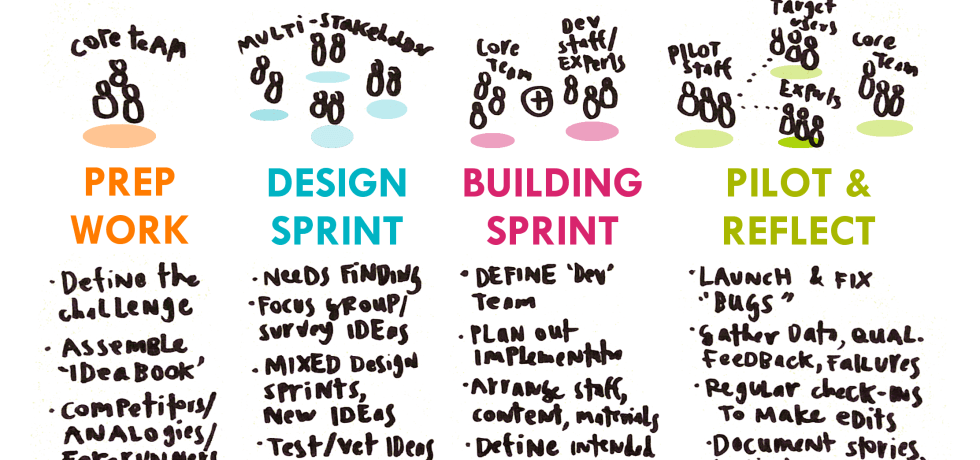 Core teAM
MULTI-STAKeHolder
Core
Team
Dev
staff/
EXPerts
PILOT
Staff
Target
users
Experts
Core
Team
PREP
WORK
DESIGN
SPRINT
BUILDING
SPRINT
PILOT &
REFLECT
· Define the
challenge
· Assemble
'IDeaBook'
· Competitors/
ANALogies/
Forerunners
· NeeDS FiNDiNg
· Focus gRoUP/
survey IDEas
· MIXED Design
sprints,
New IDEas
· Test/vet IDeas
· DEFINE 'Dev'
Team
· PLAN out
Implementatn
· Arrange staff,
content, materials
· Define intended
· LAUNCH & FIX
"BUGS"
· Gather Data, QUAL.
FeeDBack, FaiLURES
· Regular check-ins
To Make eDits
· Document stories,